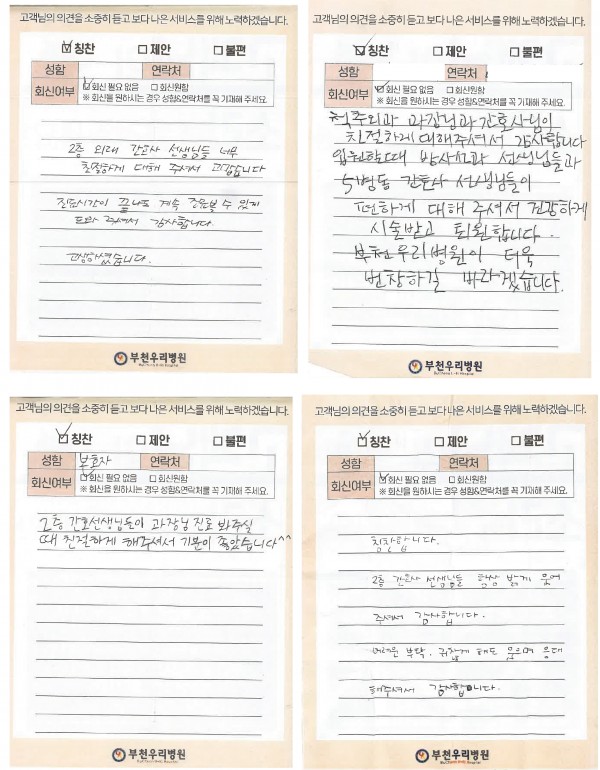 고객님의 의견을 소중히 듣고 보다 나은 서비스를 위해 노력하겠습니다.
칭찬 제안 불편
성함 연락처
회신여부 회신 필요 없음 회신원함
※ 회신을 원하시는 경우 성함&연락처를 꼭 기재해 주세요.
2층 외래 간호사 선생님들 너무
친절하게 대해 주셔서 고맙습니다
진료시간이 끝나도 계속 주윤볼 수 있게
도와 주셔서 감사합니다.
고생하셨습니다.
부천우리병원
고객님의 의견을 소중히 듣고 보다 나은 서비스를 위해 노력하겠습니다.
칭찬 제안 불편
성함 연락처
회신여부 회신 필요 없음 회신원함
※ 회신을 원하시는 경우 성함&연락처를 꼭 기재해 주세요.
척추외과 과장님과 간호사님이
친절하게 대해주셔서 감사합니다
입원할때 방사선과 선생님들과
5병동 간호사 선생님들이
편하게 대해 주셔서 건강하게
시술받고 퇴원합니다.
부천우리병원이 더욱
번창하길 바라겠습니다.
부천우리병원
고객님의 의견을 소중히 듣고 보다 나은 서비스를 위해 노력하겠습니다.
칭찬 제안 불편
성함 보호자 연락처
회신여부 회신 필요 없음 회신원함
※ 회신을 원하시는 경우 성함&연락처를 꼭 기재해 주세요.
2층 간호선생님들이 과장님 진료 봐주실
때 친절하게 해주셔서 기분이 좋았습니다^^
부천우리병원
고객님의 의견을 소중히 듣고 보다 나은 서비스를 위해 노력하겠습니다.
칭찬 제안 불편
성함 연락처
회신여부 회신 필요 없음 회신원함
※ 회신을 원하시는 경우 성함&연락처를 꼭 기재해 주세요.
칭찬합니다.
2층 간호사 선생님들 항상 밝게 웃어
주셔서 감사합니다.
어려운 부탁, 귀찮게 해도 웃으며 응대
해주셔서 감사합니다.
부천우리병원